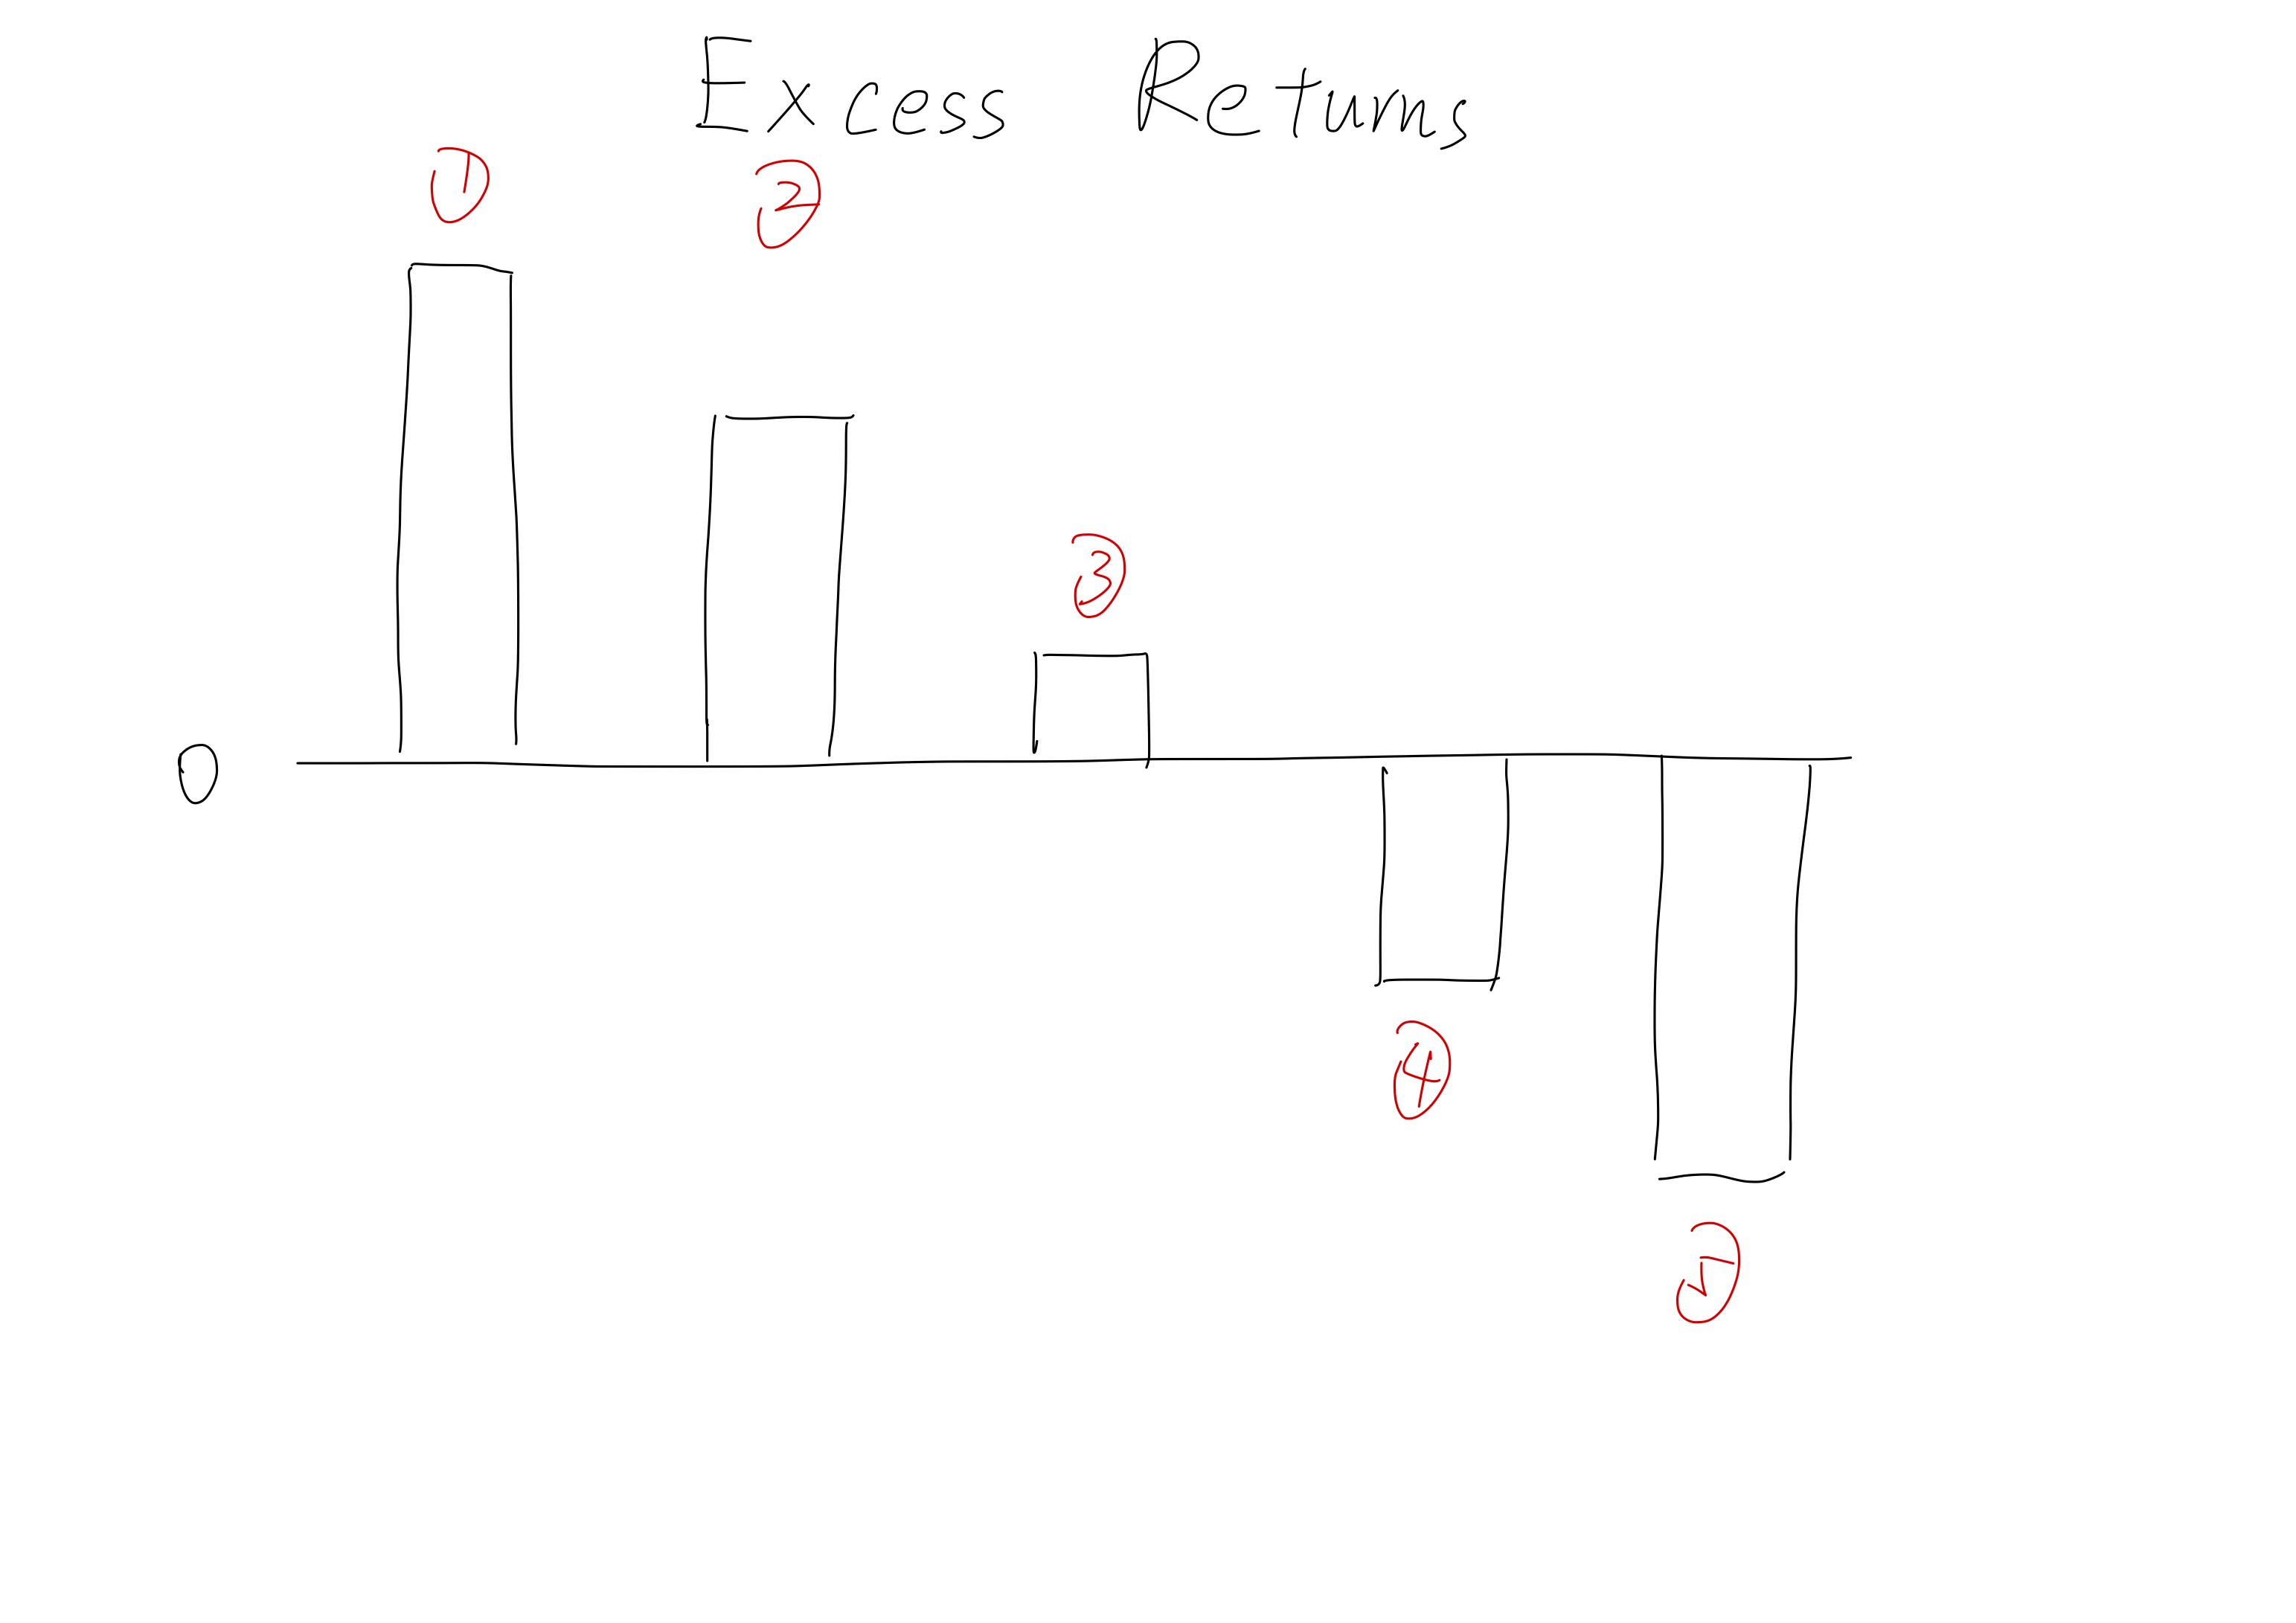 Excess Returns
①
②
③
0
④
⑤